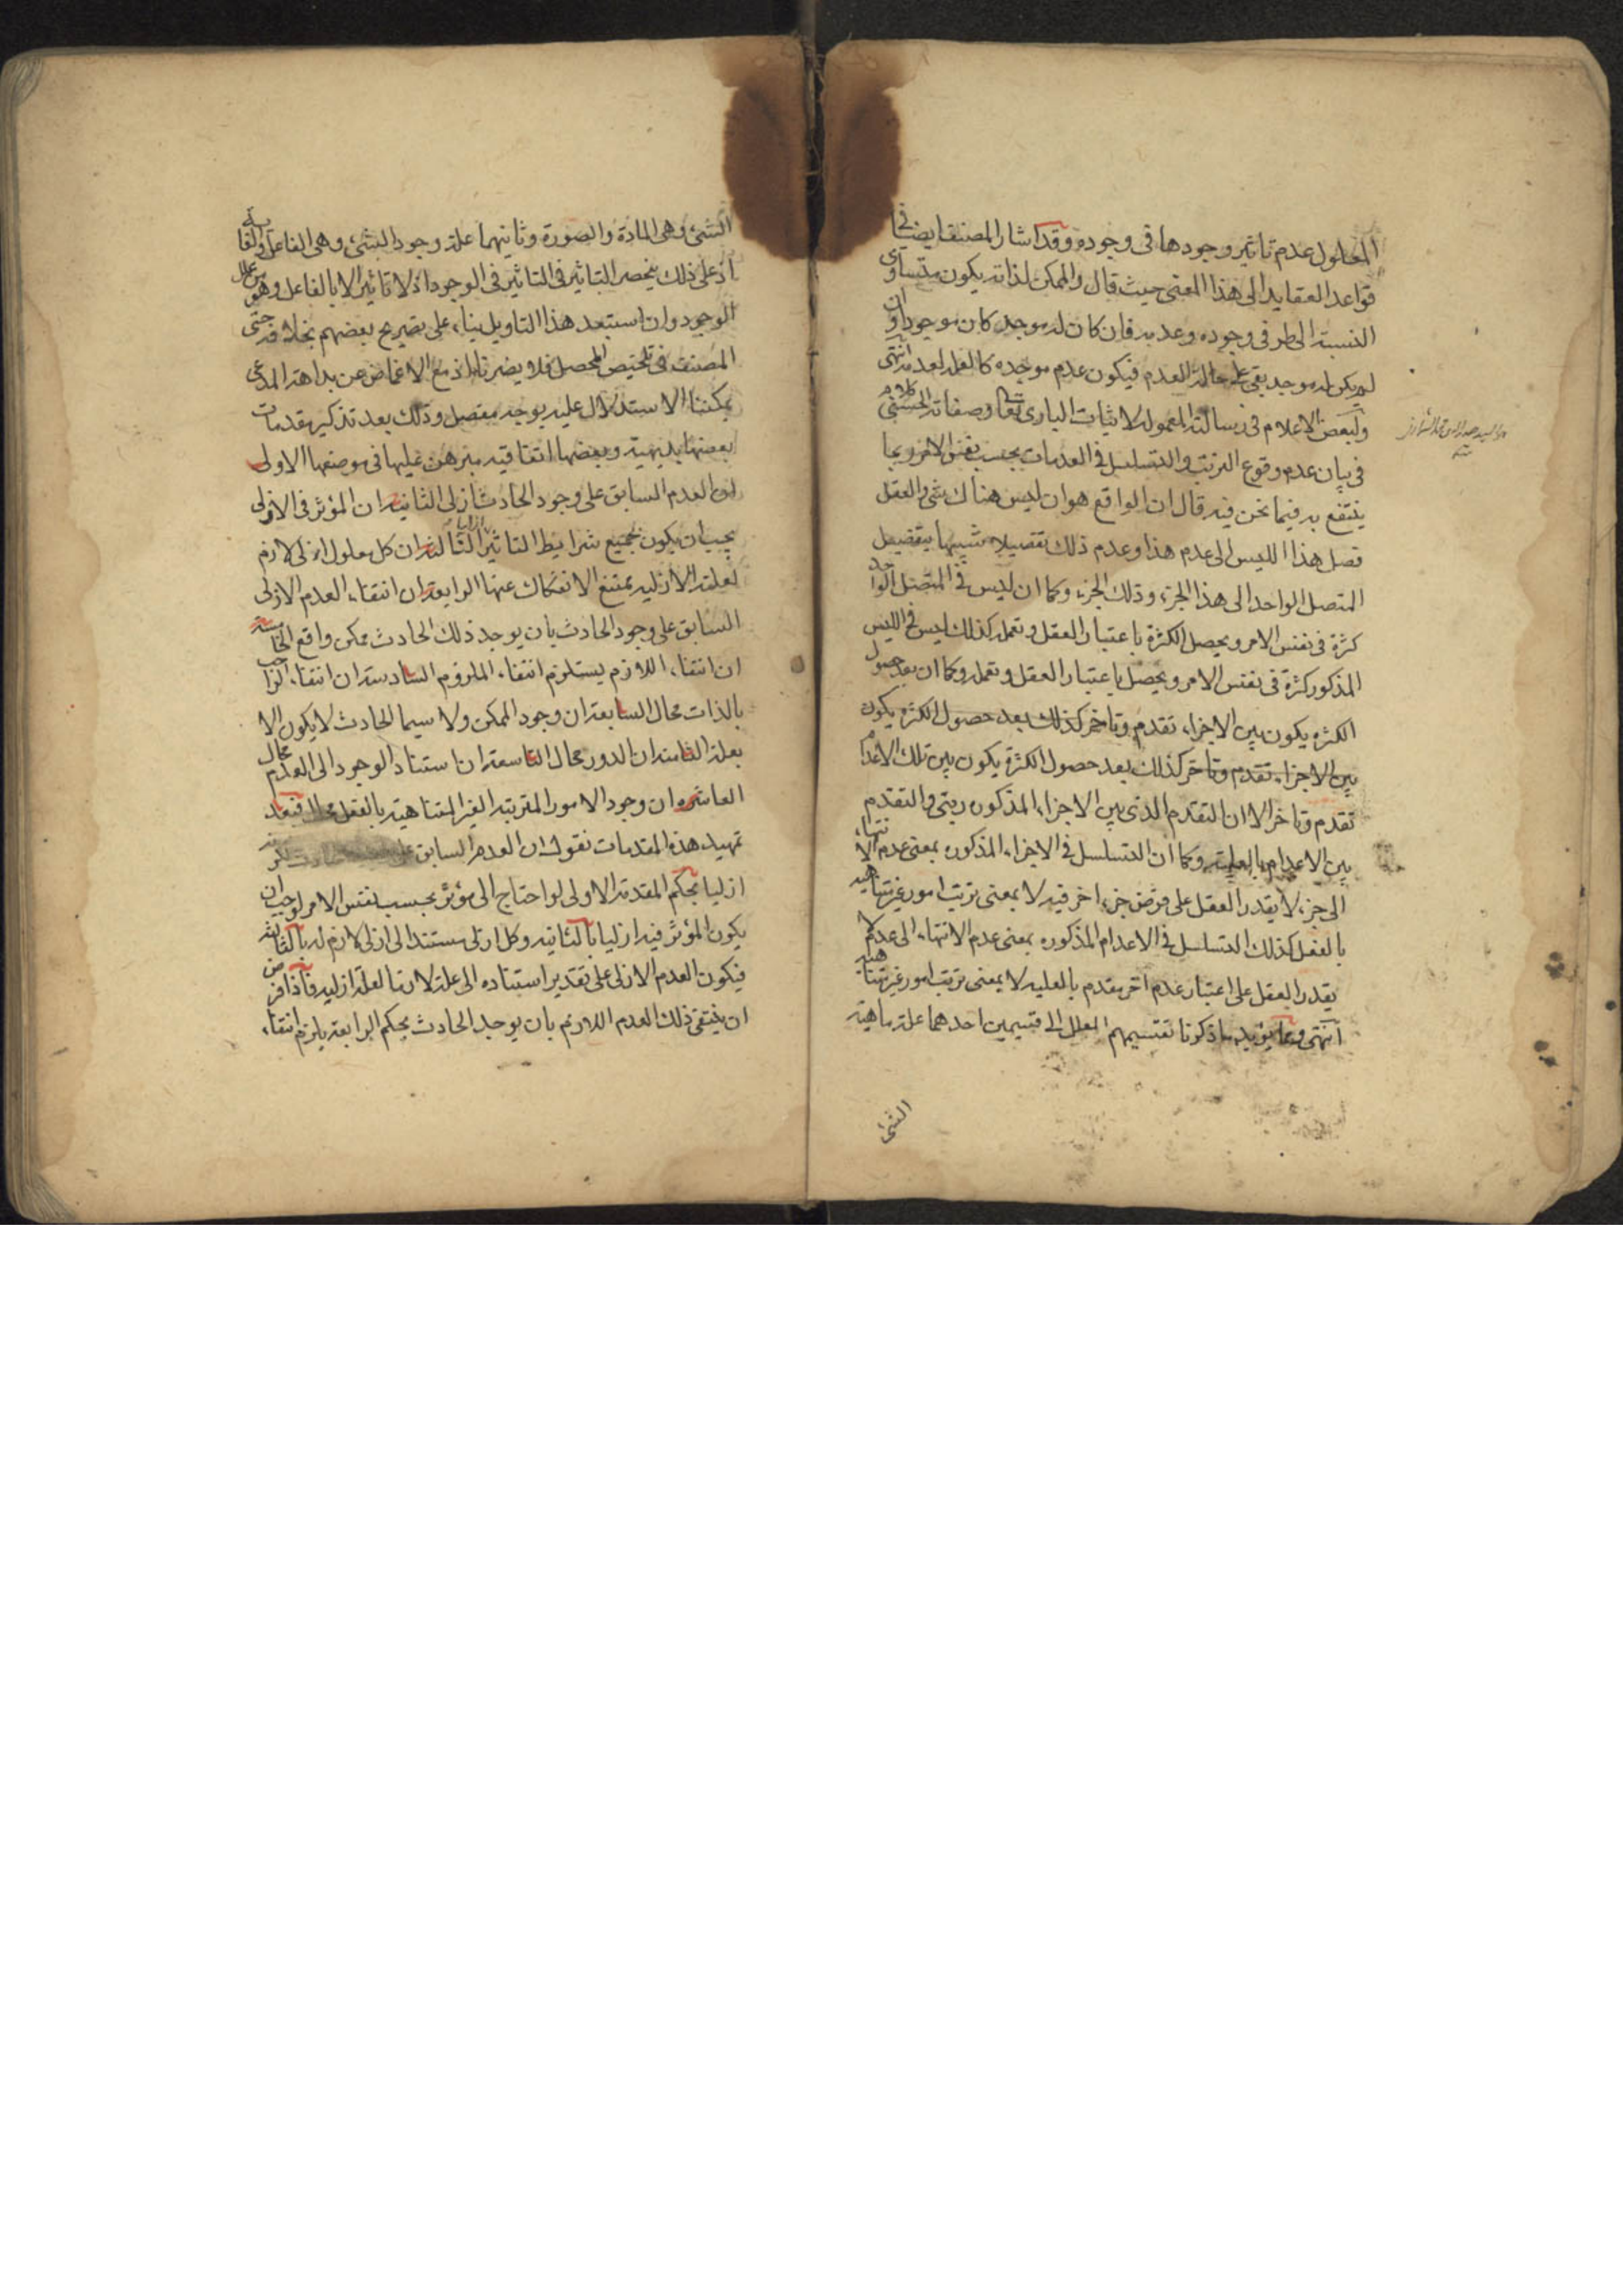 المعلول عدم تاثير وجودها فى وجوده وقد اشار المصنف ايضا فى
قواعد العقايد الى هذا المعنى حيث قال والممكن لذاته يكون متساوى
النسبة الى طرفى وجوده وعدمه فان كان له موجد كان موجودا وان
لم يكن له موجد بقى على حالة العدم فيكون عدم موجده كالعلة لعدمه انتهى
ولبعض الاعلام فى رسالته المعمولة لاثبات البارى تعالى وصفاته الحسنى كلام
فى بيان عدم وقوع الترتب والتسلسل فى العدمات بحسب نفس الامر وبما
ينتفع به فيما نحن فيه قال ان الواقع هو ان ليس هناك شئ والعقل
فصل هذا الليس الى عدم هذا وعدم ذلك تفصيلا شبيها بتفصيل
المتصل الواحد الى هذا الجزء وذلك الجزء وكما ان ليس فى المتصل الواحد
كثرة فى نفس الامر ويحصل الكثرة باعتبار العقل وتعمله كذلك ليس فى الليس
المذكور كثرة فى نفس الامر ويحصل باعتبار العقل وتعمله وكما ان بعد حصول
الكثرة يكون بين الاجزاء تقدم وتاخر كذلك بعد حصول الكثرة يكون
بين الاجزاء تقدم وتاخر كذلك بعد حصول الكثرة يكون بين تلك الاعدام
تقدم وتاخر الا ان التقدم الذى بين الاجزاء المذكوره رتبى والتقدم
بين الاعدام بالعلية وكما ان التسلسل فى الاجزاء المذكوره بمعنى عدم الانتهاء
الى جزء لا يقدر العقل على فرض جزء اخر فيه لا بمعنى ترتب امور غير متناهية
بالفعل كذلك التسلسل فى الاعدام المذكوره بمعنى عدم الانتهاء الى عدم لا
يقدر العقل على اعتبار عدم اخر مقدم بالعليه لا بمعنى ترتب امور غير متناهية
انتهى ومما يؤيد ما ذكرنا تقسيمهم العلل الى قسمين احدهما علة ماهية
الشئ
الشئ وهى المادة والصورة وثانيهما علة وجود الشئ وهى الفاعل والغاية
اذ على ذلك ينحصر التاثير فى التاثير فى الوجود اذ لا تاثير الا بالفاعل وهو من علل
الوجود وان استبعد هذا التاويل بناء على تصريح بعضهم بخلافه حتى
المصنف فى تلخيص المحصل فلا يضرنا اذ مع الاغماض عن بداهة المدعى
يمكننا الاستدلال عليه بوجه مفصل وذلك بعد تذكير مقدمات
بعضها بديهية وبعضها اتفاقيه مبرهن عليها فى موضعها الاولى
ان العدم السابق على وجود الحادث ازلى الثانية ان المؤثر فى الازلى
يجب ان يكون بجميع شرايط التاثير ازليا الثالثة ان كل معلول ازلى لازم
لعلته الازليه يمتنع الانفكاك عنها الرابعة ان انتفاء العدم الازلى
السابق على وجود الحادث بان يوجد ذلك الحادث ممكن واقع الخامسة
ان انتفاء اللازم يستلزم انتفاء الملزوم السادسة ان انتفاء الواجب
بالذات محال السابعة ان وجود الممكن ولا سيما الحادث لا يكون الا
بعلة الثامنة ان الدور محال التاسعة ان استناد الوجود الى العدم محال
العاشره ان وجود الامور المترتبة الغير المتناهية بالفعل محال فبعد
تمهيد هذه المقدمات نقول ان العدم السابق على
ازليا بحكم المقدمة الاولى لو احتاج الى مؤثر بحسب نفس الامر لوجب ان
يكون المؤثر فيه ازليا بالثانيه وكل ازلى مستند الى ازلى لازم له بالثالثة
فيكون العدم الازلى على تقدير استناده الى علة لازما لعلة ازليه فاذا فرض
ان ينتفى ذلك العدم اللازم بان يوجد الحادث بحكم الرابعة يلزم انتفاء